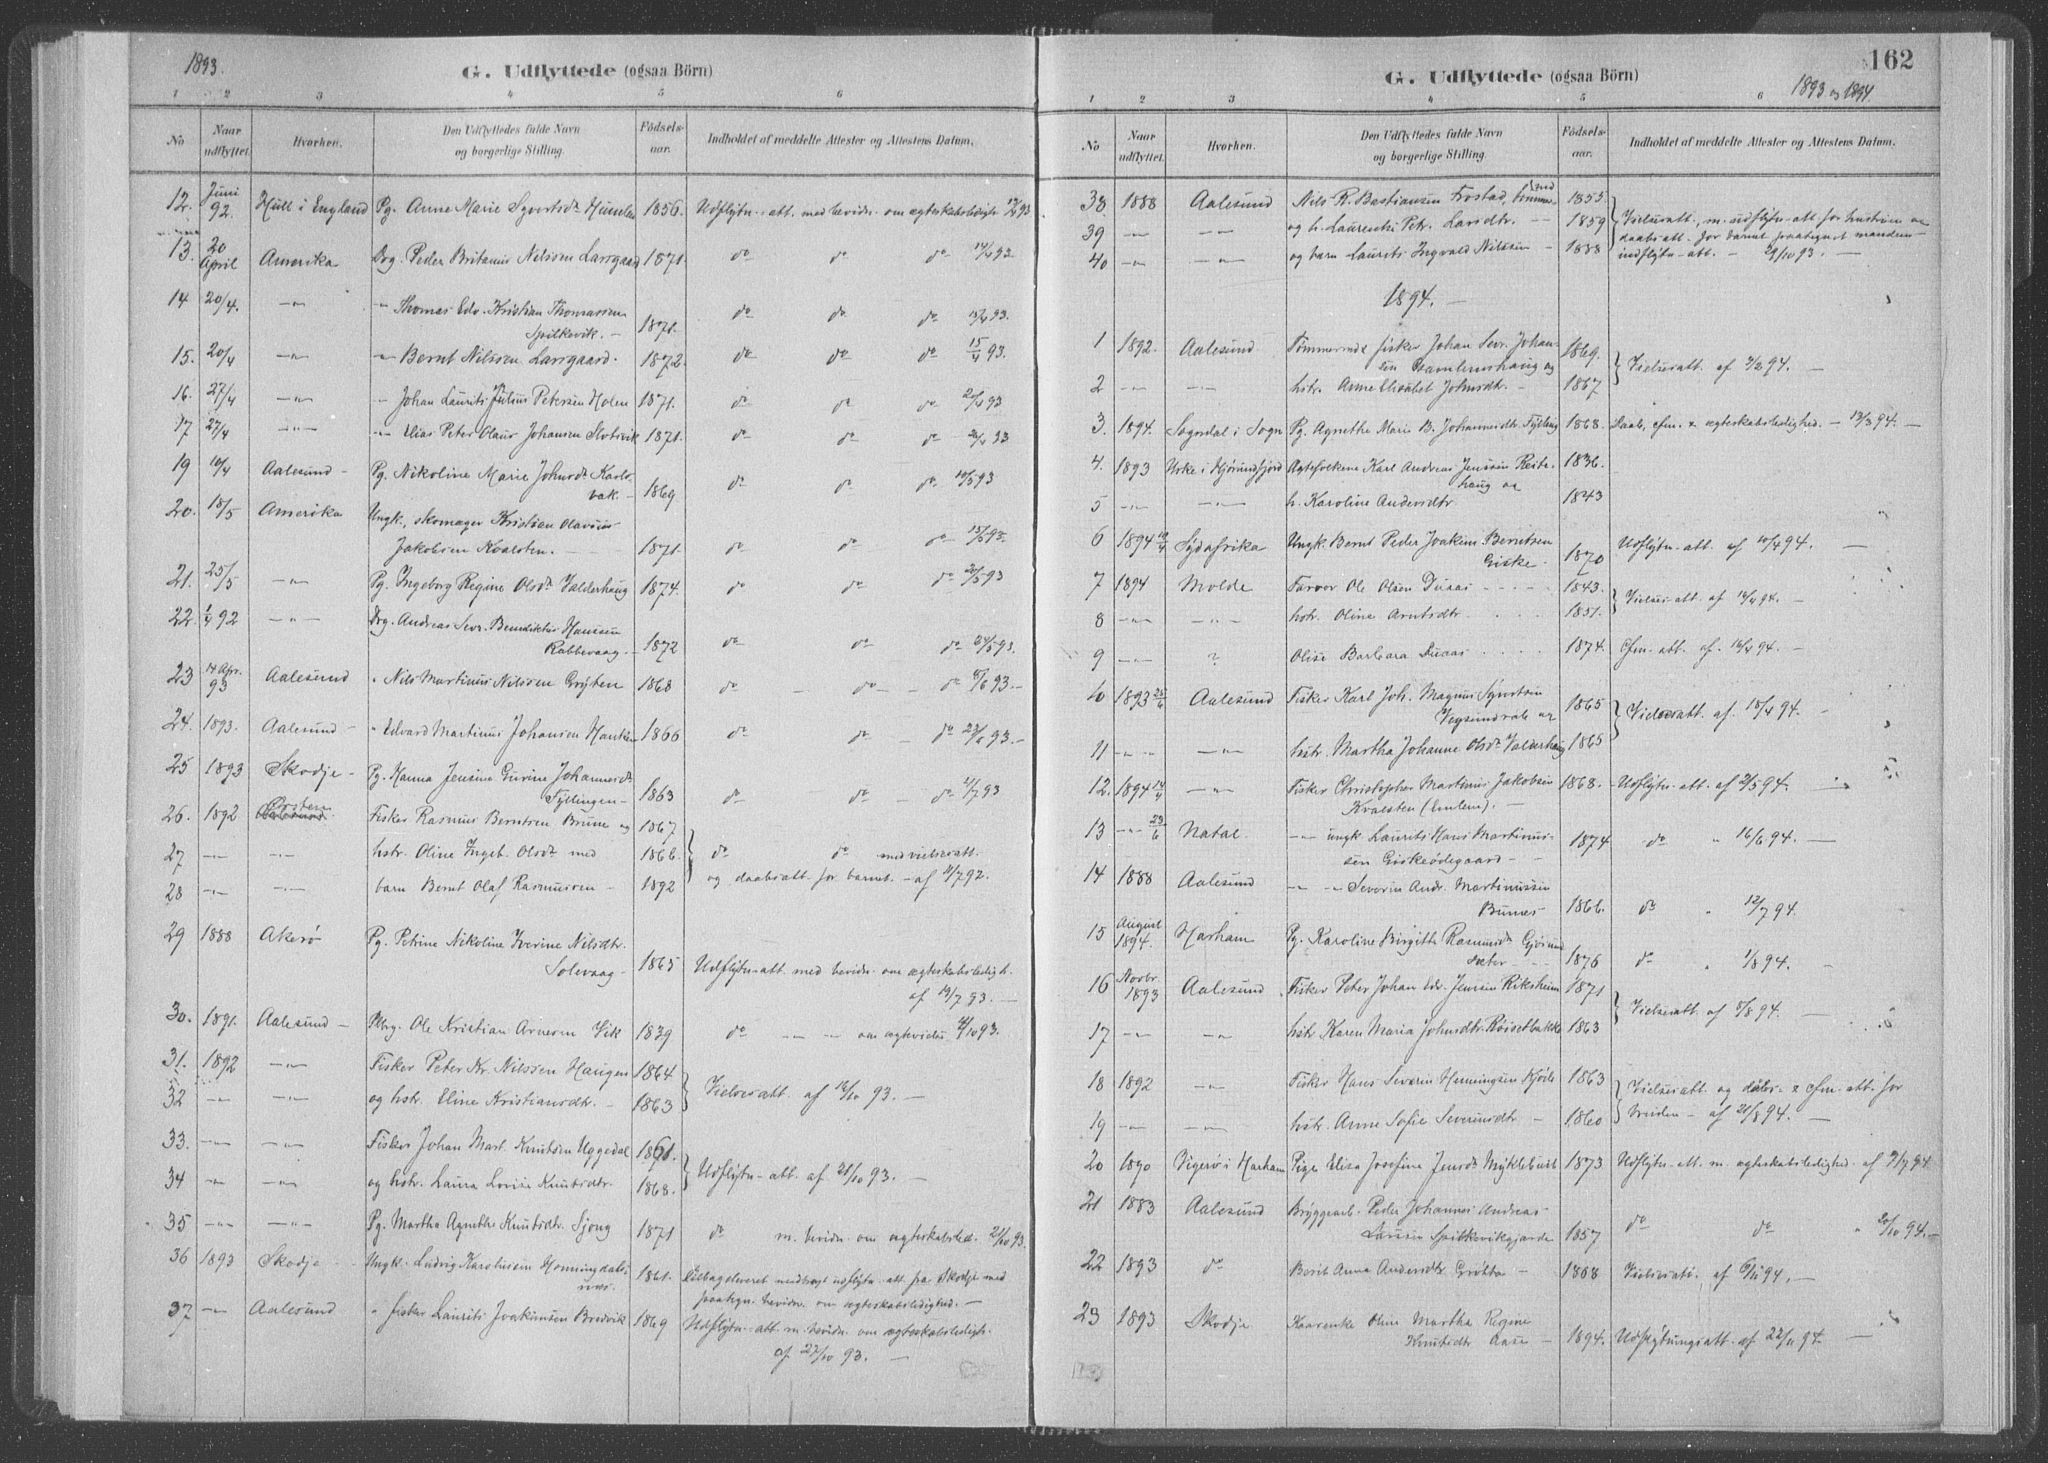 1893.
G. Udflyttede (ogsaa Börn)
1 2 3 4 5 6
No Naar udflyttet. Hvorhen. Den Udflyttedes fulde Navn og borgerlige Stilling. Födsels-aar. Indholdet af meddelte Attester og Attestens Datum.
12. Juni 92. Hull i England Pg. Anne Marie Syvertsdr 1856. Udflytn.-att. med bevidn. om ægteskabsledigh. 93
13. 20 April Amerika Ung. Peder Nilssen Larsgaard 1871. do do do 14/4 93
14 20/4. -"- -"- Thomas Edv. Kristian Thomassen
Spilkevik. - 1871. do do do 93.
15. 20/4 -"- -"- Bernt Nilssen Larsgaard. 1872. do do do 15/4 93.
16. 27/4 -"- " Johan Laurits Julius Petersen Holen 1871. do do do 93
17 27/4 -"- -"- Elias Peter Olaus Johansen Slotsvik 1871. do do do 93
19 Aalesund - Pg. Nikoline Marie Johnsdr
1869 do do do 93
20. 18/5 Amerika Ungk., skomager Kristian Olavius
Jakobsen Kvalsten. - 1871. do do do 93.
21. 25/5 -"- Pg. Ingeborg Regine Olsdr Valderhaug 1874. do do do 93
22 92 -"- Andreas Sevr. Benediktus Hanssen
Rabbevaag. - 1872 do do do 93.
23 14 Apr. 93 Aalesund " Nils Martinus Nilssen Gryten 1868 do - do - do 93. -
24. 1893. Aalesund - " Edvard Martinus Johansen 1866 do do - do 93. -
25 1893 Skodje - Pg. Hanna Jensine Gurine Johannesdr
Fyllingen - 1863 do do - do 93
26. 1892 Fisker Rasmus Berntsen Brune og 1867
27 -"- -"- hstr. Oline Ingeb. Olsdr med 1866. do do med vielsesatt.
28 -"- -"- barn Bernt Olaf Rasmussen - 1892 og daabsatt. for barnet. - af 92.
29 1888 Akerø Pg. Petrine Nikoline Iverine Nilsdtr.
Solevaag - 1865 Udflytn-att. med bevidn. om ægteskabsledigh.
af 19/7 93. -
30. 1891. Aalesund - Ole Kristian Arnesen Vik 1839 do -"- 93.
31. 1892 -"- Fisker Peter Kr. Nilssen Haugen 1864
32 -"- -"- og hstr. Eline Kristiansdtr. - 1863 Vielsesatt. af 93. -
33. -"- -"- Fisker Johan Mart. Knutsen Uggedal 1861.
34 -"- -"- og hstr. Laura Lovise Knutsdtr. 1868. Udflytn-att. af 21/10 93. -
35 -"- -"- Pg. Martha Agnethe Knutsdtr. Sjong 1871 do m. bevidn. om ægteskabsled. 21/10 93.
36 1893 Skodje - Ungk. Ludvig Karolusen Honningdals-
1861. Tilbageleveret medbragt udflytn.-att. fra Skodje med
paategn. bevidn. om ægteskabsledighed. -
37 -"- Aalesund " fisker Laurits Joakimsen Bredvik 1869 Udflytn-att. m. bevidn. om ægteskabsledigh.
af 27/10 93. -
162
G. Udflyttede (ogsaa Börn)
1893 og 1894.
1 2 3 4 5 6
No Naar udflyttet. Hvorhen. Den Udflyttedes fulde Navn og borgerlige Stilling. Födsels-aar. Indholdet af meddelte Attester og Attestens Datum.
38 1888 Aalesund Nils R. Bastiansen Frostad, tømmermd 1855.
39 -"- -"- og h. Laurentse Petr. Larsdtr. - 1859 Vielsesatt., m. udflytn-att for hustruen og
daabsatt. for barnet paategnet mandens
40 -"- -"- og barn Laurits Ingvald Nilssen - 1888 udflytn-att. - 29/10 93. -
1894. -
1 1892. Aalesund Tømmermd fisker Johan Sevr. Johan-
sen og 1869. Vielsesatt. af 94. -
2 -"- -"- hstr. Anne Elisabet Johnsdtr. - 1867
3. 1894. Sogndal i Sogn Pg. Agnethe Marie B. Johannesdtr. Fylling 1868. Daab, cfm. & ægteskabsledighed. - 13/3 94. -
4. 1893 Urke i Hjørundfjord Ægtefolkene Karl Andreas Jenssen Reite-
haug og 1836.
5 -"- -"- h. Karoline Andersdtr. 1843
6 1894 Sydafrika Ungk. Bernt Peder Joakim Berntsen
Giske - 1870 Udflytn-att. af 94. -
7 1894 Molde Farver Ole Olsen Duaas - - 1843.
8 -"- -"- hstr. Oline Arntsdtr . . . 1851. Vielses-att. af 94. -
9 -"- ? Olise Barbara Duaas . . . . 1874. Cfm.-att. af 94. -
10 1893 Aalesund Fisker Karl Joh. Magnus Syvertsen
Vegsundvåg og 1865 Vielsesatt. af 94. -
11 -"- -"- hstr. Martha Johanne Olsdr Valderhaug 1865
12. 1894 14/4 -"- Fisker Christopher Martinus Jakobsen
Kvalsten (Emlem). - 1868. Udflytn-att. af 2/5 94. -
13 -"- 23/6 Natal. -"- ungk. Laurits Hans Martinus-
sen Giskeødegaard - 1874 do " 16/6 94. -
14 1888 Aalesund -"- Severin Andr. Martinussen
1866. do " 12/7 94.
15 August 1894. Harham Pg. Karoline Birgitte Rasmusdr
1876 do " 1/8 94. -
16 Novbr. 1893 Aalesund Fisker Peter Johan Edv. Jensen Riksheim 1871
Vielsesatt. af 8/8 94. -
17 -"- -"- hstr. Karen Maria Johnsdtr. Røisetbakke 1863
18 1892 -"- Fisker Hans Severin Henningsen 1863 Vielsesatt. og daabs- & cfm. att. for
19 -"- -"- hstr. Anne Sofie Severinsdtr - 1860 bruden - af 21/8 94. -
20 1890 Vigerø i Harham Pige Elisa Josefine Jensdr Myklebust 1873. Udflytn-att. m. ægteskabsledighed af 94.
21 1883 Aalesund Bryggearb. Peder Johannes Andreas
Larssen Spilkevikgjerde 1857 do do " 20/10 94. -
22 1893 do Berit Anna Andersdtr - 1868 Vielsesatt. af 6/11 94. -
23 1893 Skodje Oline Martha Regine
Knutsdtr Aase - 1894. Udflytningsatt. af 22/11 94. -